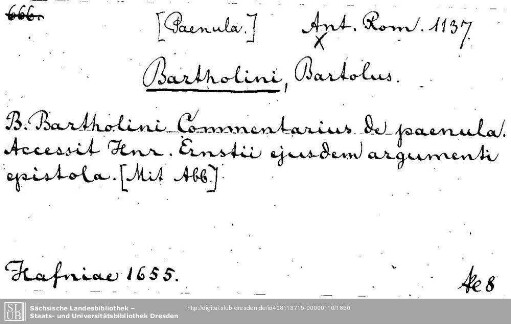 666.
[Paenula.] Ant. Rom. 1137.
Bartholini, Bartolus.
B. Bartholini Commentarius de paenula.
Accessit Hnr. Ernstii ejusdem argumenti
epistola. [Mit Abb.]
Hafniae 1655.
8
Sächsische Landesbibliothek –
Staats- und Universitätsbibliothek Dresden